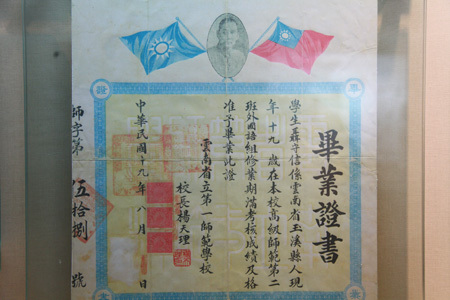 畢業證書
學生聶守信係雲南省玉溪縣人現
年十九歲在本校高級師範第二
班外國語組修業期滿考核成績及格
准予畢業此證
雲南省立第一師範學校
校長楊天理
中華民國十九年八月 日
師字第伍拾捌號
證